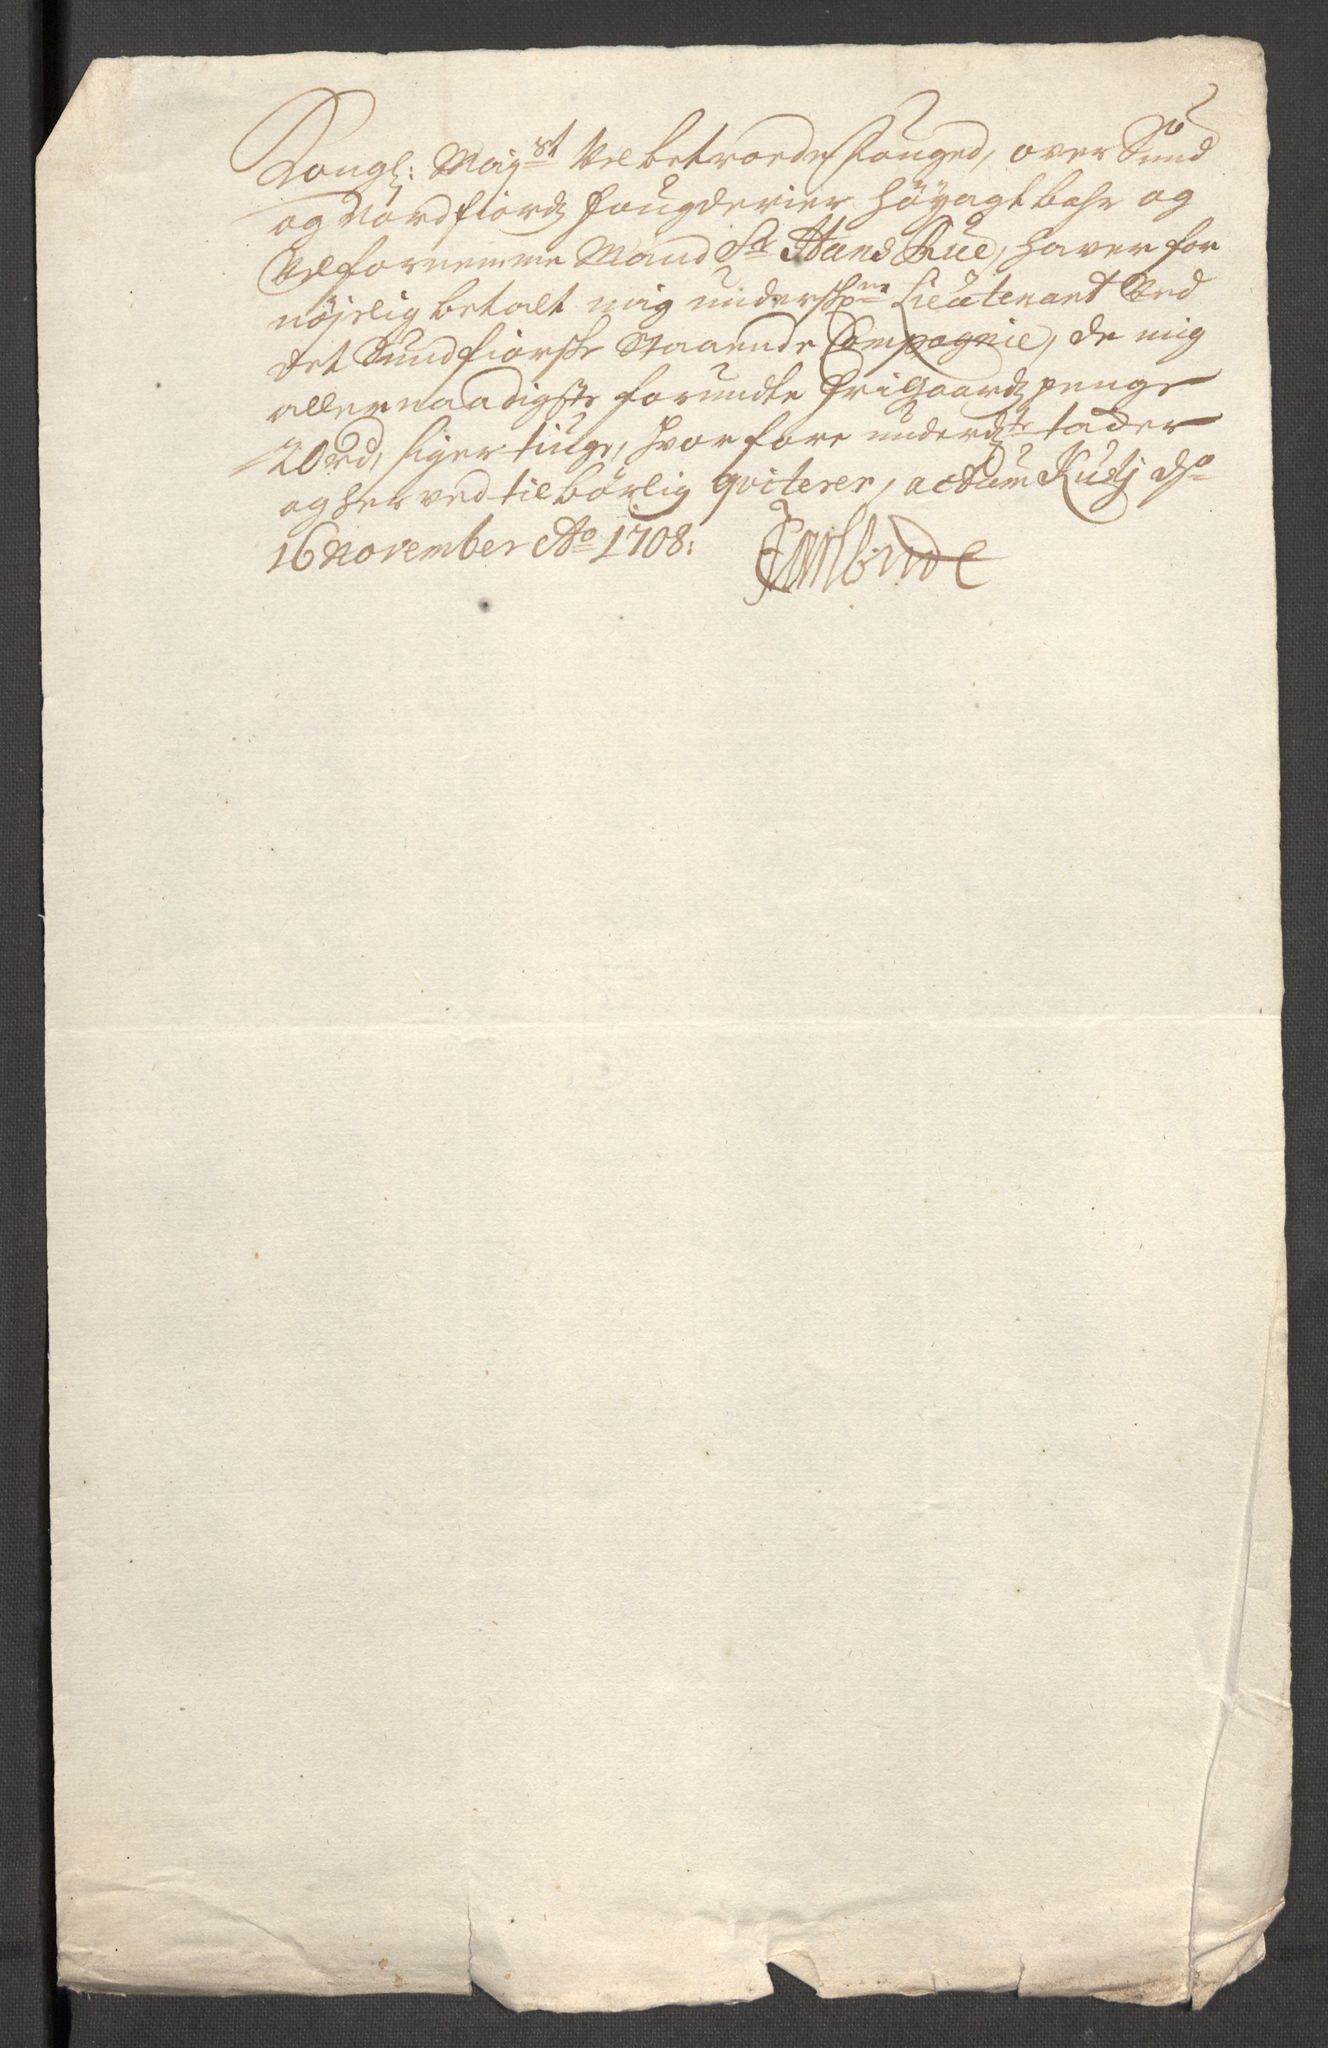 Kongl: Mays st Velbetroede Fouged, over Sund
og Nordfiords fougderier Høyagtbahr og
Velfornemme Mand Sr Hans Rue, haver for
nøjelig betalt mig underskne Lieutenant Ved
det Sundfiorske Staaende Compagnie, de mig
allernaadigste forundte friGaards penge
20 rd, siger tiuge, hvorfore underdte tacker
og her ved tilbørlig qviterer, actum dso
16 November Ao 1708: